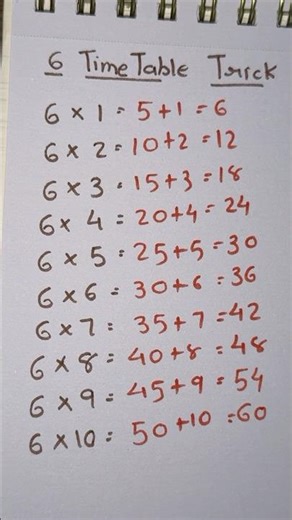 6 Time Table Trick
6 × 1 = 5+1 = 6
6 × 2 = 10+2 = 12
6 × 3 = 15+3 = 18
6 × 4 = 20+4 = 24
6 × 5 = 25+5 = 30
6 × 6 = 30+6 = 36
6 × 7 = 35+7 = 42
6 × 8 = 40+8 = 48
6 × 9 = 45+9 = 54
6 × 10 = 50+10 = 60